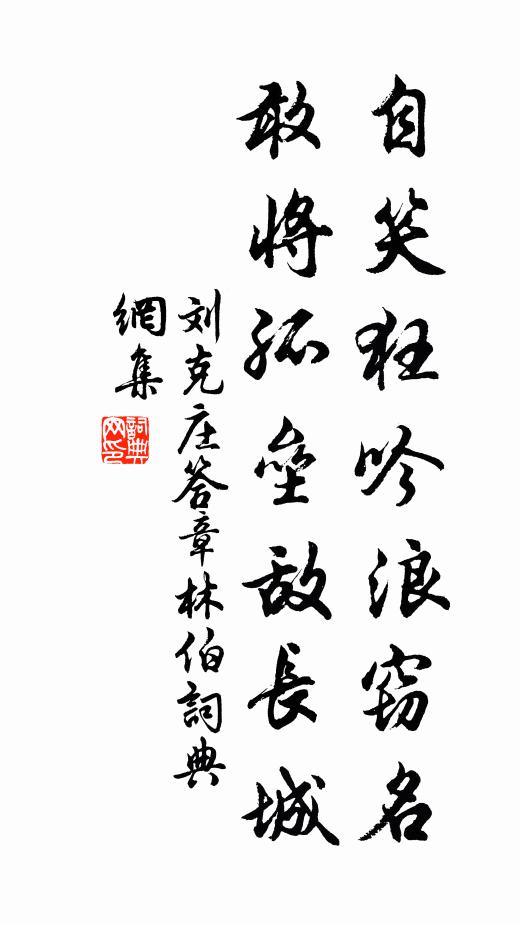 自笑狂吟浪窃名
敢将孤壘敌長城
刘克庄答章林伯詞典
網集
詞典
网印